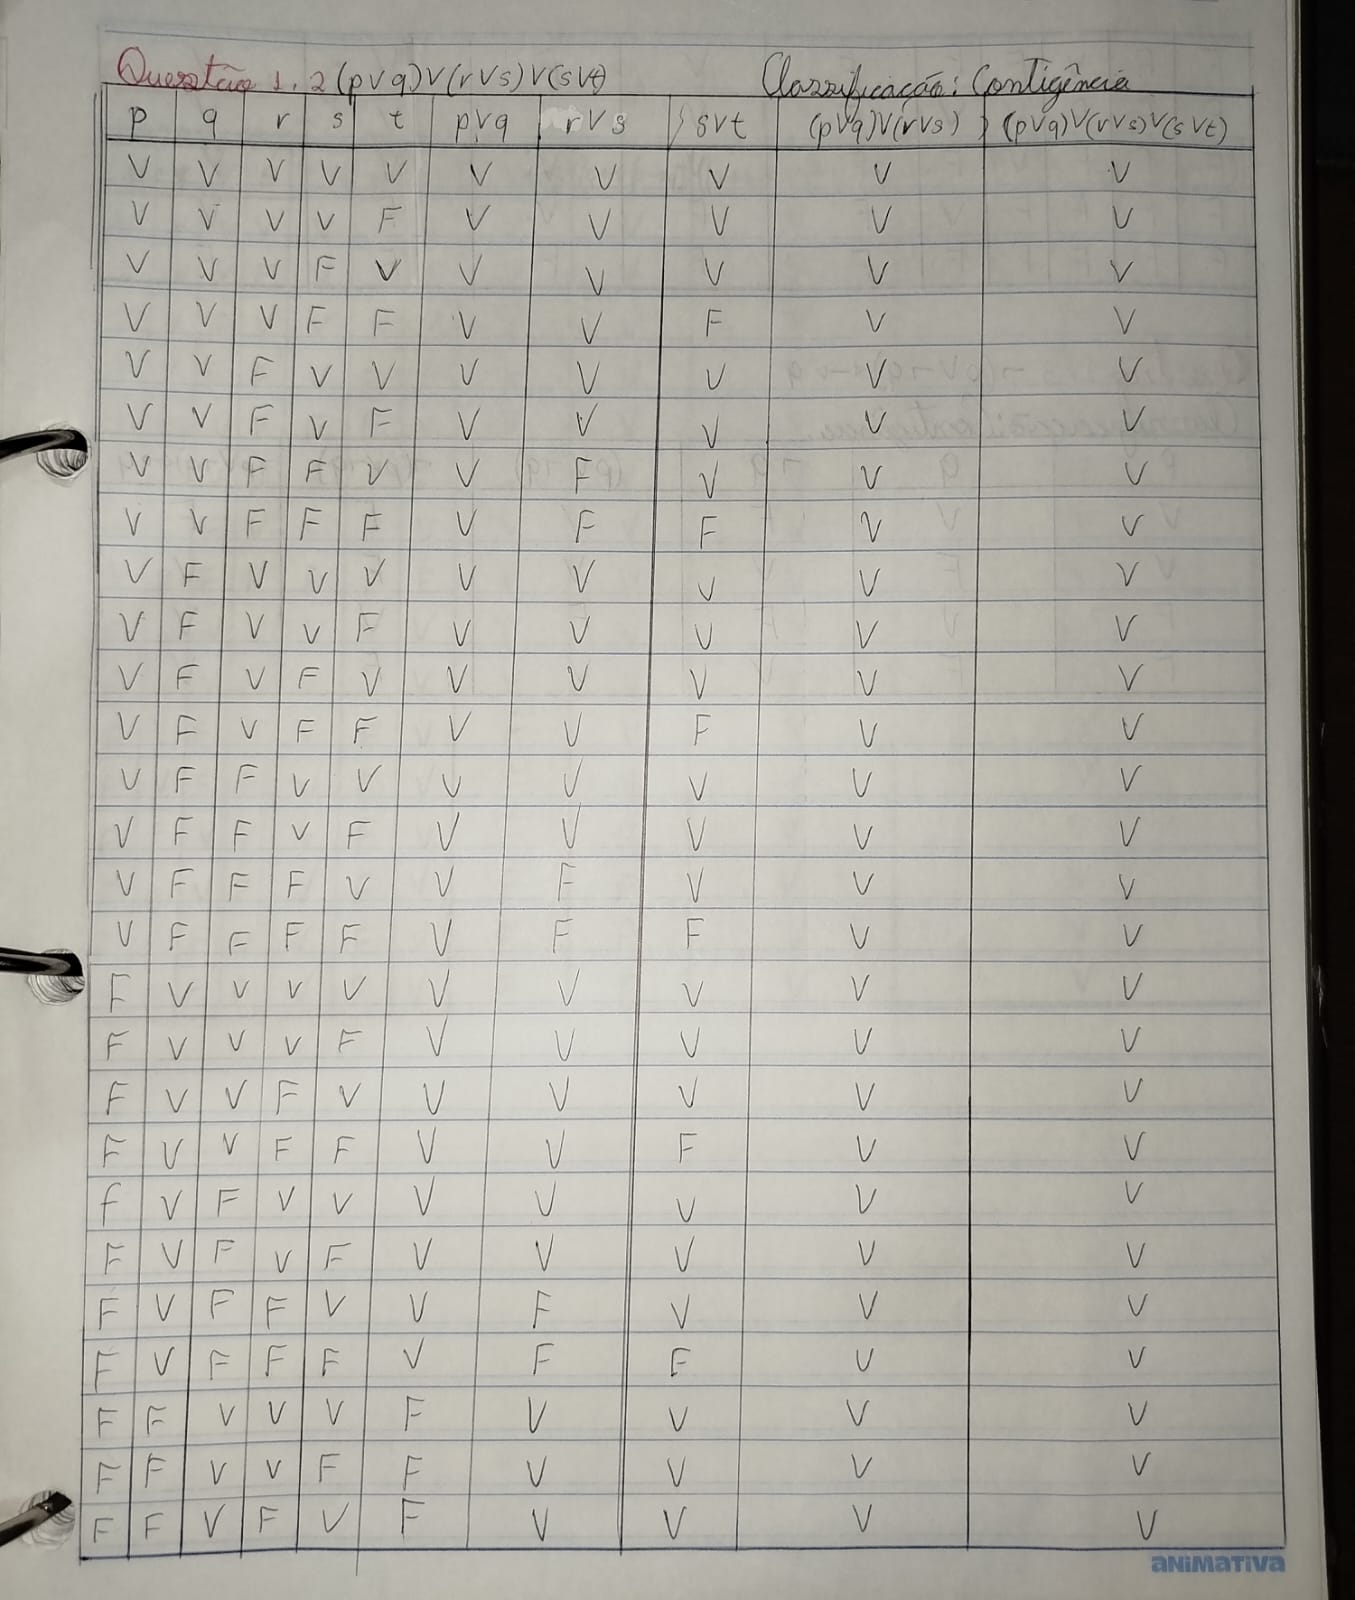 Questão 1.2 (p∨q)∨(r∨s)∨(s∨t) Classificação: Contigência
p q r s t p∨q r∨s s∨t (p∨q)∨(r∨s) (p∨q)∨(r∨s)∨(s∨t)
V V V V V V V V V V
V V V V F V V V V V
V V V F V V V V V V
V V V F F V V F V V
V V F V V V V V V V
V V F V F V V V V V
V V F F V V F V V V
V V F F F V F F V V
V F V V V V V V V V
V F V V F V V V V V
V F V F V V V V V V
V F V F F V V F V V
V F F V V V V V V V
V F F V F V V V V V
V F F F V V F V V V
V F F F F V F F V V
F V V V V V V V V V
F V V V F V V V V V
F V V F V V V V V V
F V V F F V V F V V
f V F V V V V V V V
F V F V F V V V V V
F V F F V V F V V V
F V F F F V F F V V
F F V V V F V V V V
F F V V F F V V V V
F F V F V F V V V V
aNiMaTiVa